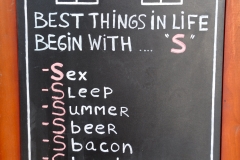 BEST THINGS IN LIFE
BEGIN WITH .... "S"
- Sex
- SLEEP
- SUMMER
- Sbeer
- Sbacon